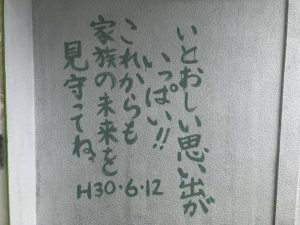 いとおしい思い出が
いっぱい!!
これからも
家族の未来を
見守ってね。
H30・6・12